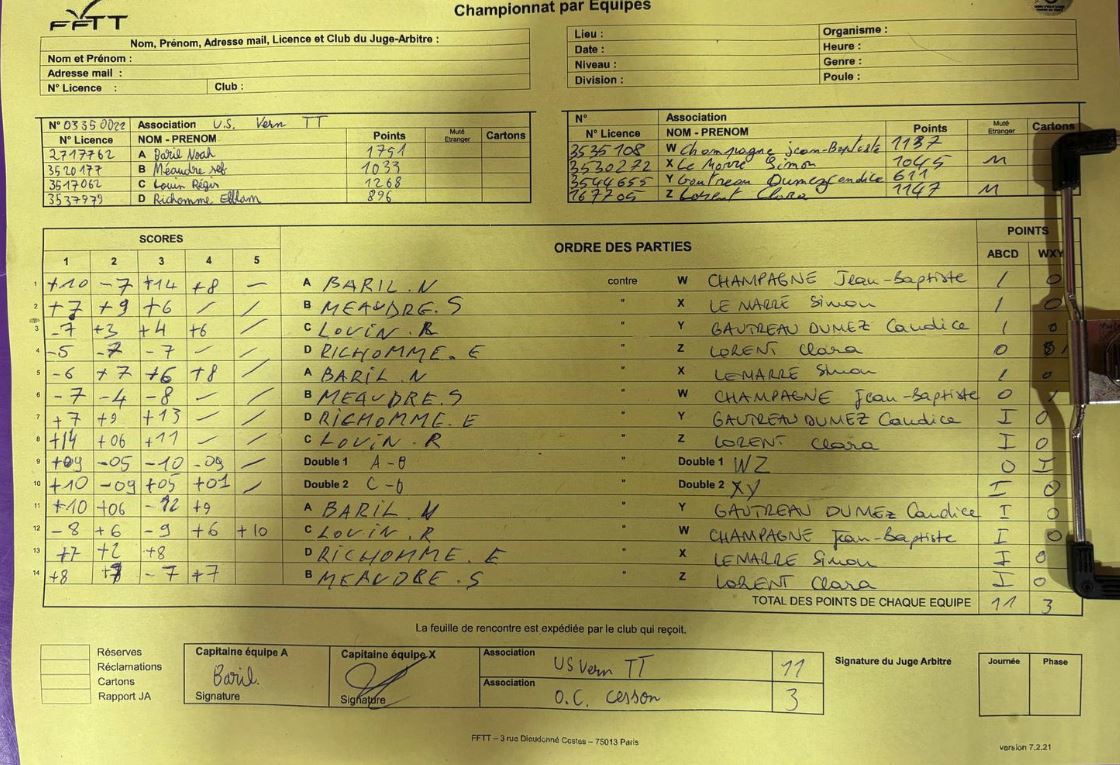 FFTT
Championnat par Equipes
Nom, Prénom, Adresse mail, Licence et Club du Juge-Arbitre :
Nom et Prénom :
Adresse mail :
N° Licence : Club :
Lieu : Organisme :
Date : Heure :
Niveau : Genre :
Division : Poule :
N° 03350022 Association U.S. Vern TT
N° Licence NOM - PRENOM Points Muté Etranger Cartons
2717762 A Baril Noah 1751
3520177 B Méaudre 1033
3517062 C Louin Régis 1268
3537979 D Richomme Efflam 896
N° Association
N° Licence NOM - PRENOM Points Muté Etranger Cartons
3535708 W Champagne jean-Baptiste 1137
3530272 X Le Marre Simon 1045 M
3544655 Y Gautreau Dumez Candice 611
167705 Z Lorent Clara 1147 M
SCORES ORDRE DES PARTIES POINTS
1 2 3 4 5 ABCD WXY
1 +10 -7 +14 +8 - A BARIL.N contre W CHAMPAGNE Jean-Baptiste 1 0
2 +7 +9 +6 / / B MEAUDRE.S " X LE MARRE Simon 1 0
3 -7 +3 +4 +6 / C LOUIN.R " Y GAUTREAU DUMEZ Candice 1 0
4 -5 -7 -7 / / D RICHOMME.E " Z LORENT Clara 0 1
5 -6 +7 +6 +8 / A BARIL.N " X LEMARRE Simon 1 0
6 -7 -4 -8 / / B MEAUDRE.S " W CHAMPAGNE Jean-Baptiste 0 1
7 +7 +9 +13 / / D RICHOMME.E " Y GAUTREAU DUMEZ Candice I 0
8 +14 +06 +11 / / C LOUIN.R " Z LORENT Clara I 0
9 +09 -05 -10 -09 / Double 1 A-B " Double 1 WZ 0 I
10 +10 -09 +05 +01 / Double 2 C-D " Double 2 XY I 0
11 +10 +06 -12 +9 A BARIL N " Y GAUTREAU DUMEZ Candice I 0
12 -8 +6 -9 +6 +10 C LOUIN.R " W CHAMPAGNE Jean-Baptiste I 0
13 +7 +2 +8 D RICHOMME.E " X LEMARRE Simon I 0
14 +8 +7 -7 +7 B MEAUDRE.S " Z LORENT Clara I 0
TOTAL DES POINTS DE CHAQUE EQUIPE 11 3
La feuille de rencontre est expédiée par le club qui reçoit.
Réserves
Réclamations
Cartons
Rapport JA
Capitaine équipe A
Baril.
Signature
Capitaine équipe X
Signature
Association US Vern TT 11
Association O.C. Cesson 3
Signature du Juge Arbitre
Journée Phase
FFTT – 3 rue Dieudonné Costes – 75013 Paris
version 7.2.21